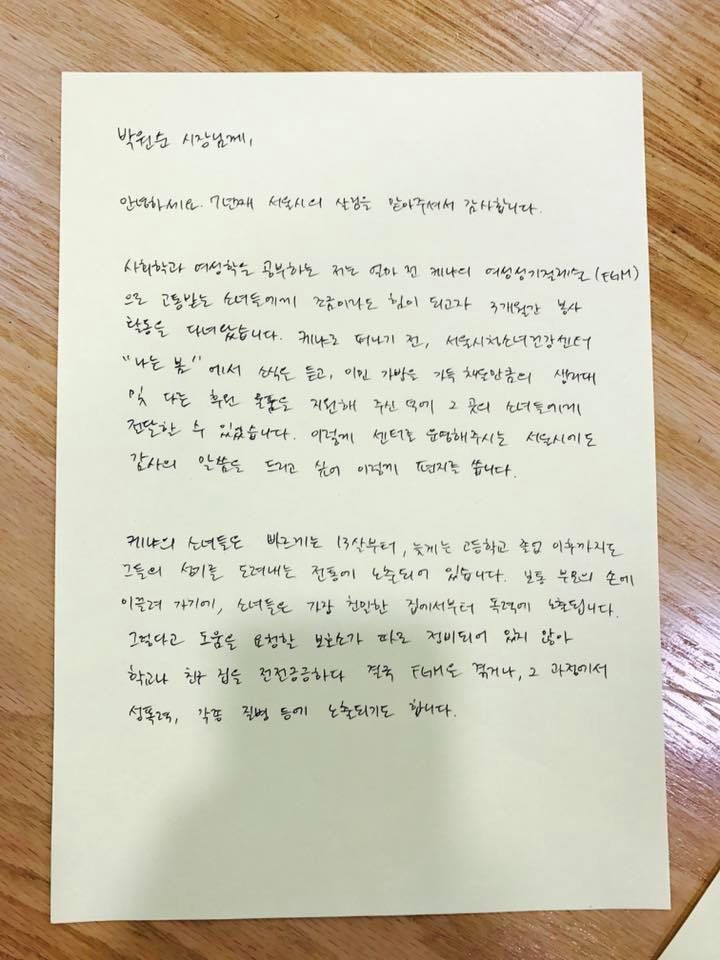 박원순 시장님께,
안녕하세요. 7년째 서울시의 살림을 맡아주셔서 감사합니다.
사회학과 여성학을 공부하는 저는 얼마 전 케냐의 여성성기절제술(FGM)
으로 고통받는 소녀들에게 조금이라도 힘이 되고자 3개월간 봉사
활동을 다녀왔습니다. 케냐로 떠나기 전, 서울시청소년건강센터
"나는 봄"에서 소식을 듣고, 이민 가방을 가득 채울만큼의 생리대
및 다른 후원 물품을 지원해 주신 덕에 2 곳의 소녀들에게
전달할 수 있었습니다. 이렇게 센터를 운영해주시는 서울시에도
감사의 말씀을 드리고 싶어 이렇게 편지를 씁니다.
케냐의 소녀들은 빠르게는 13살부터, 늦게는 고등학교 졸업 이후까지도
그들의 성기를 도려내는 전통에 노출되어 있습니다. 보통 부모의 손에
이끌려 가기에, 소녀들은 가장 친밀한 집에서부터 폭력에 노출됩니다.
그렇다고 도움을 요청할 보호소가 따로 정비되어 있지 않아
학교나 친구 집을 전전긍긍하다 결국 FGM을 겪거나, 그 과정에서
성폭력, 각종 질병 등에 노출되기도 합니다.